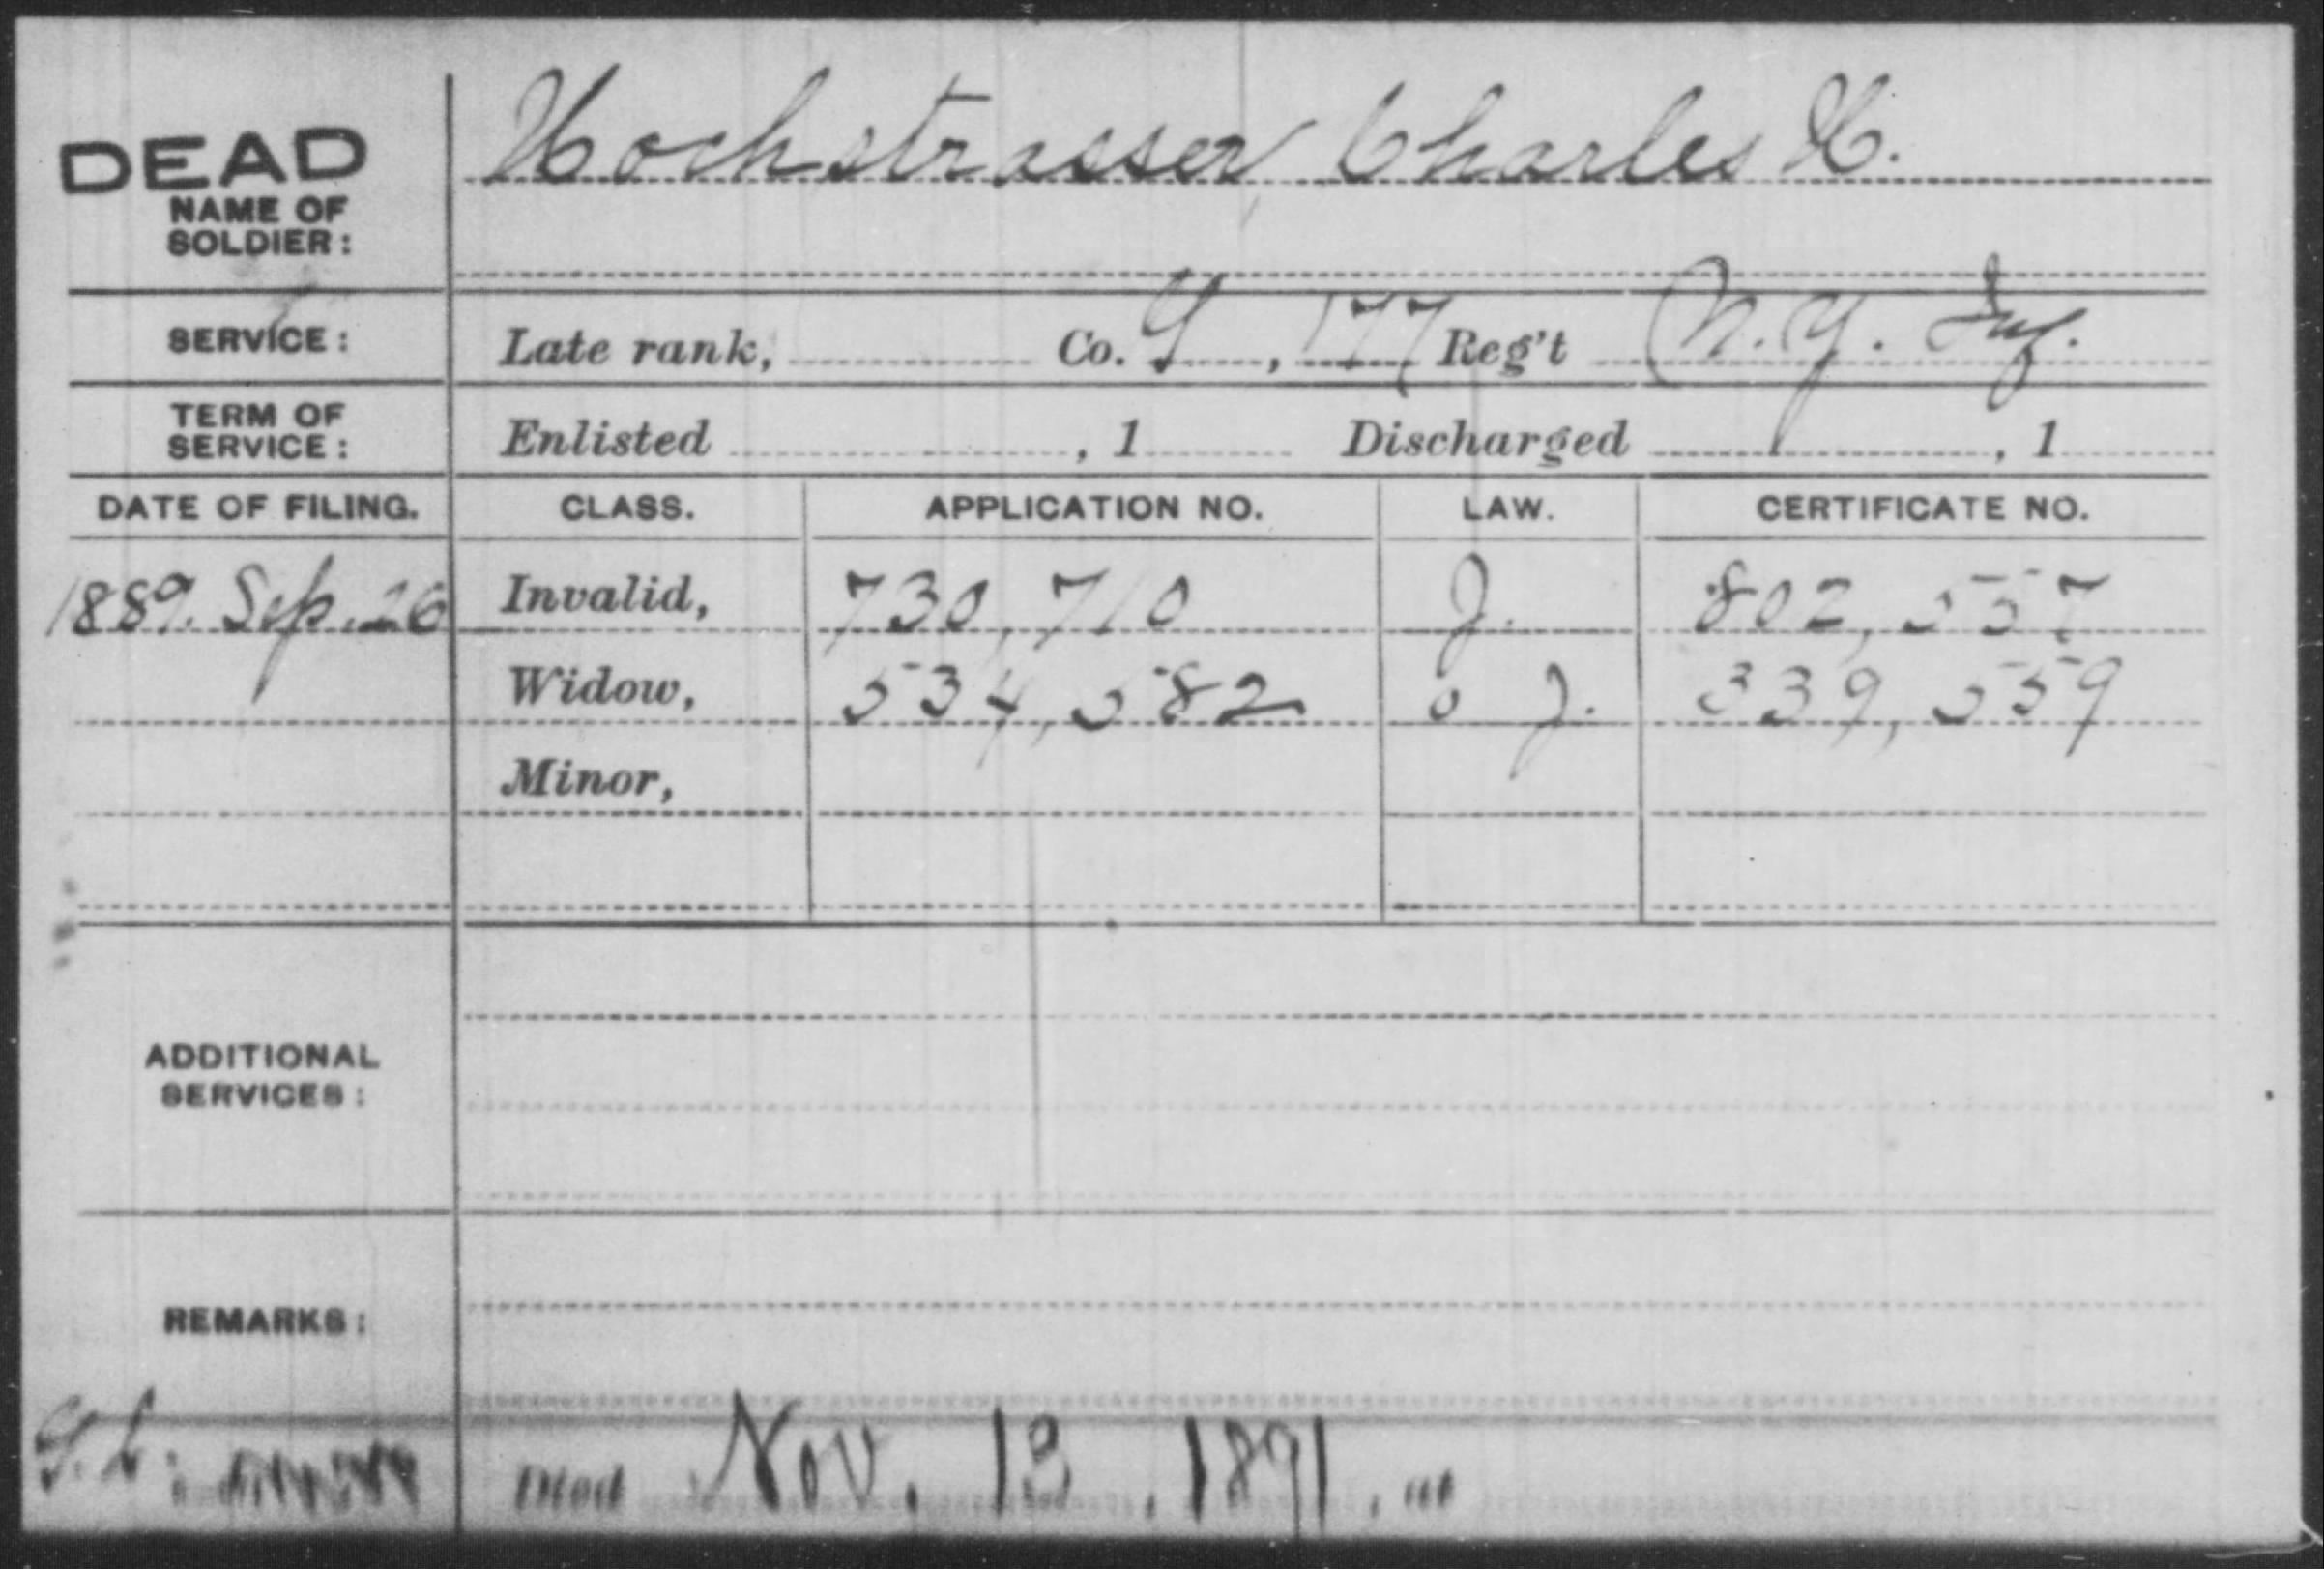 DEAD
Hochstrasser, Charles H.
NAME OF
SOLDIER:
SERVICE: Late rank, Co. G, 177 Reg't N.Y. Inf.
TERM OF
SERVICE: Enlisted , 1 Discharged , 1
DATE OF FILING. CLASS. APPLICATION NO. LAW. CERTIFICATE NO.
1889. Sep. 26 Invalid, 730,710 J. 802,557
Widow, 534,582 o J. 339,559
Minor,
ADDITIONAL
SERVICES:
REMARKS:
Died Nov. 13, 1891, at